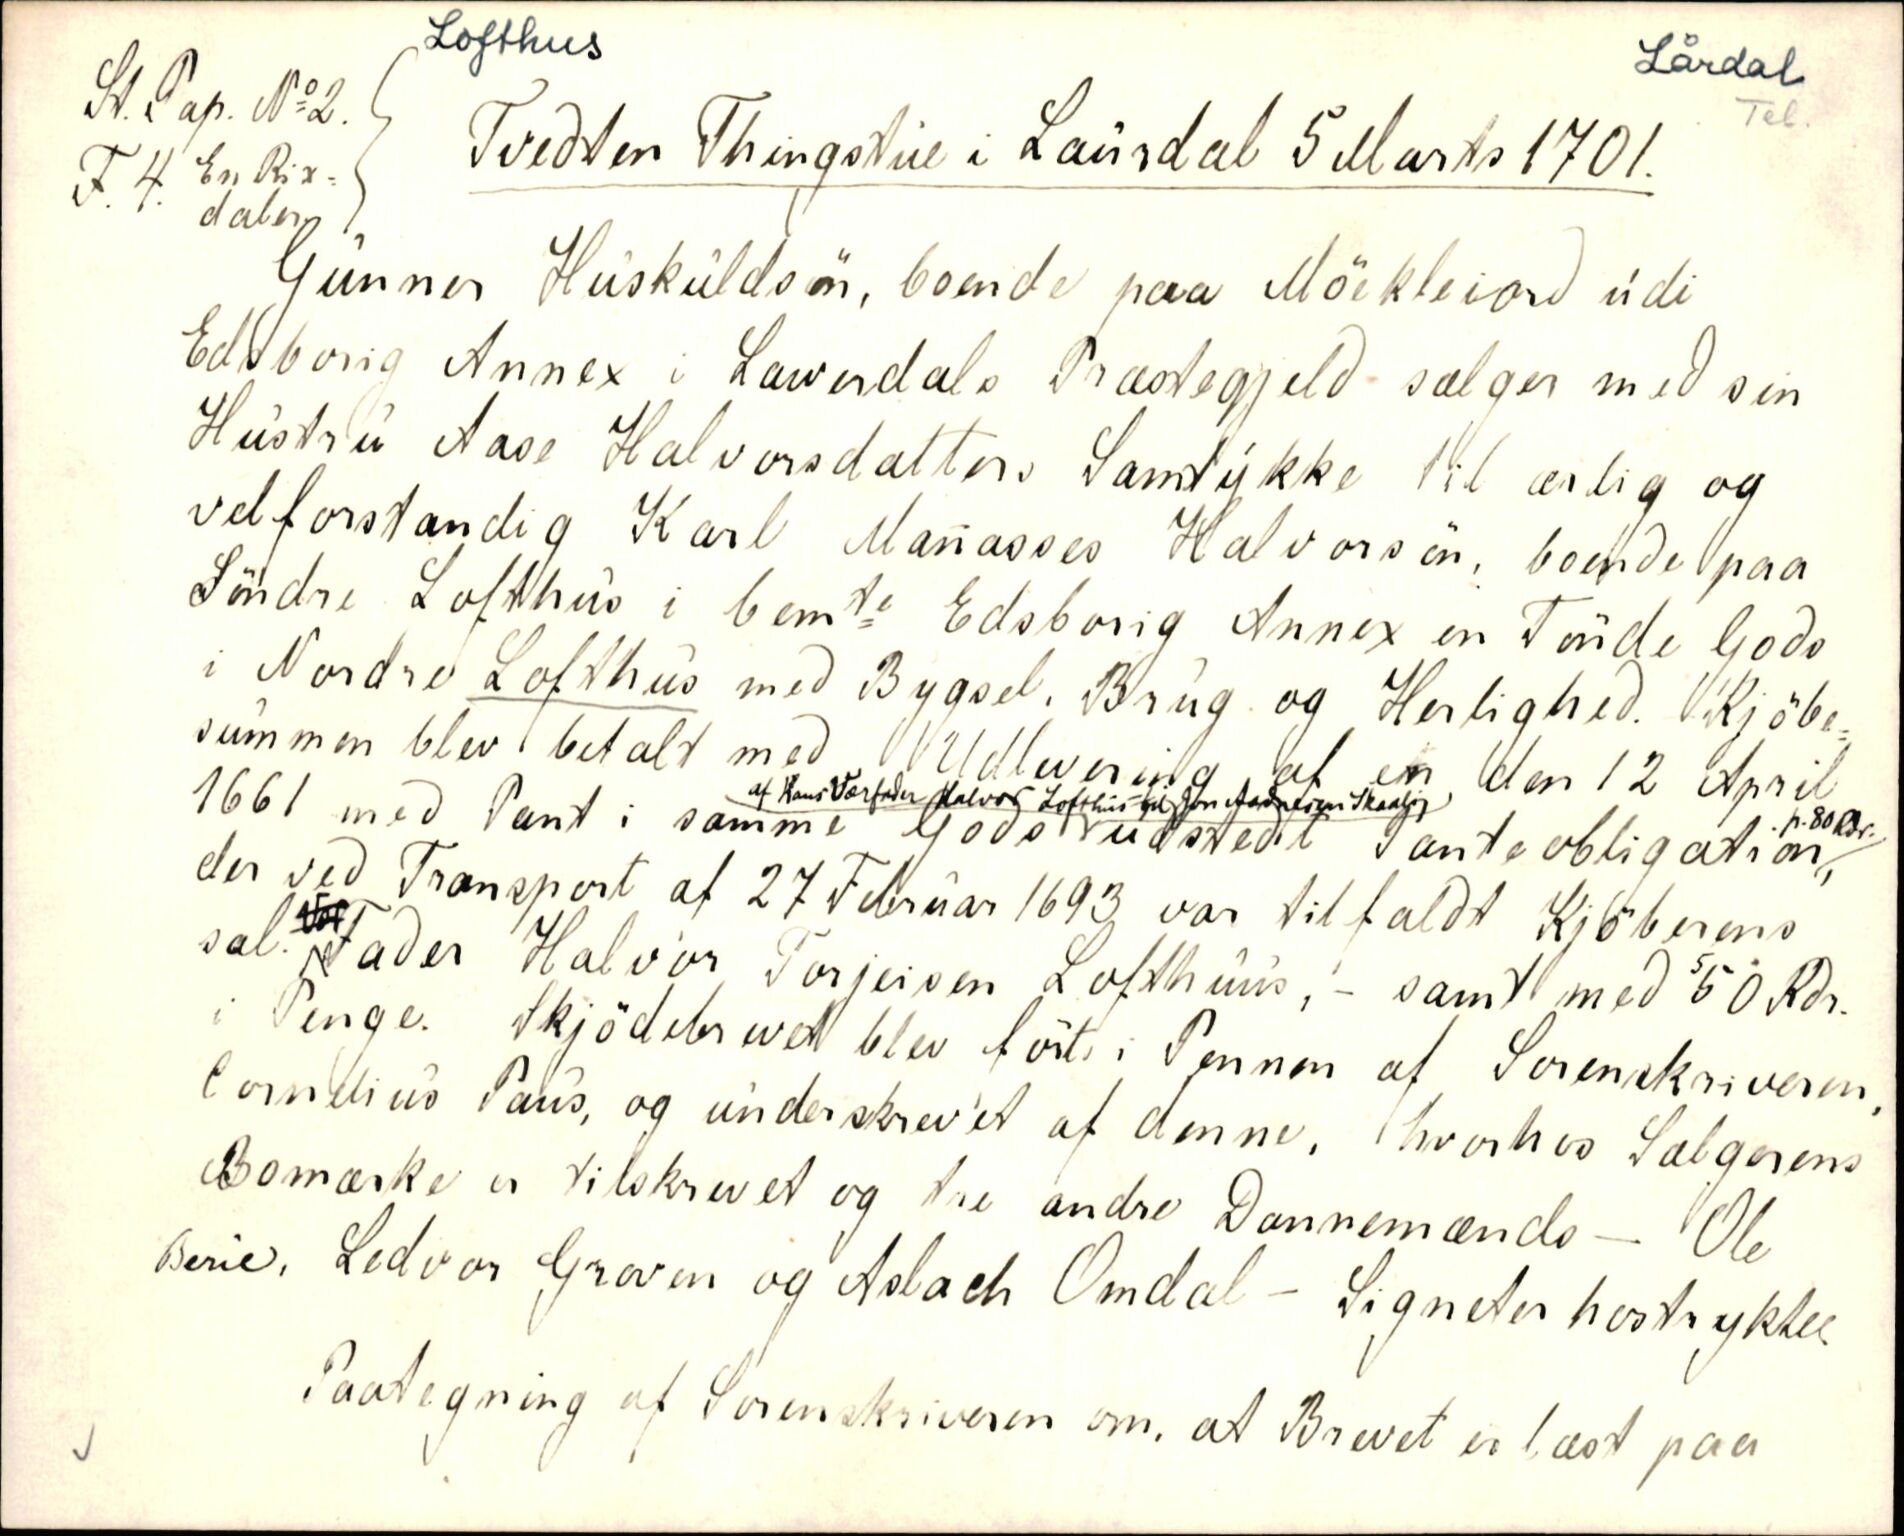 Lofthus
Lårdal
Tel.
St. Pap. No 2.
F. 4. En Rix=
daler
Tvedten Thingstúe i Laúrdal 5 Marts 1701.
Gúnner Húskúldsön, boende paa Möekleiord údi
Edsborig Annex i Lawerdals Præstegjeld sælger med sin
Hústrú Aase Halvorsdatters Samtÿkke til ærlig og
velforstandig Karl Man̄asses Halvorsön, boende paa
Söndre Lofthús i bemte Edsborig Annex en Tönde Gods
i Nordre Lofthús med Bygsel, Brúg og Herlighed. Kjöbe=
súmmen blev betalt med Udlevering af en, den 12 April
af Hans Værfader Halvor Lofthús til Jon
1661 med Pant i samme Gods údstedt Panteobligation, p. 80 Rdr.
der ved Transport af 27 Februar 1693 var tilfaldt Kjöberens
sal. Fader Halvor Torjeisen Lofthúus, – samt med 50 Rdr.
i Penge. Skjödebrevet blev fört i Pennen af Sorenskriveren,
Cornelius Paús, og únderskrevet af denne, hvorhos Sælgerens
Bomærke er tilskrevet og tre andre Dannemænds – Ole
Berie, Ledvor Groven og Aslach Omdal – Signeter hostrykte.
Paategning af Sorenskriveren om, at Brevet er læst paa